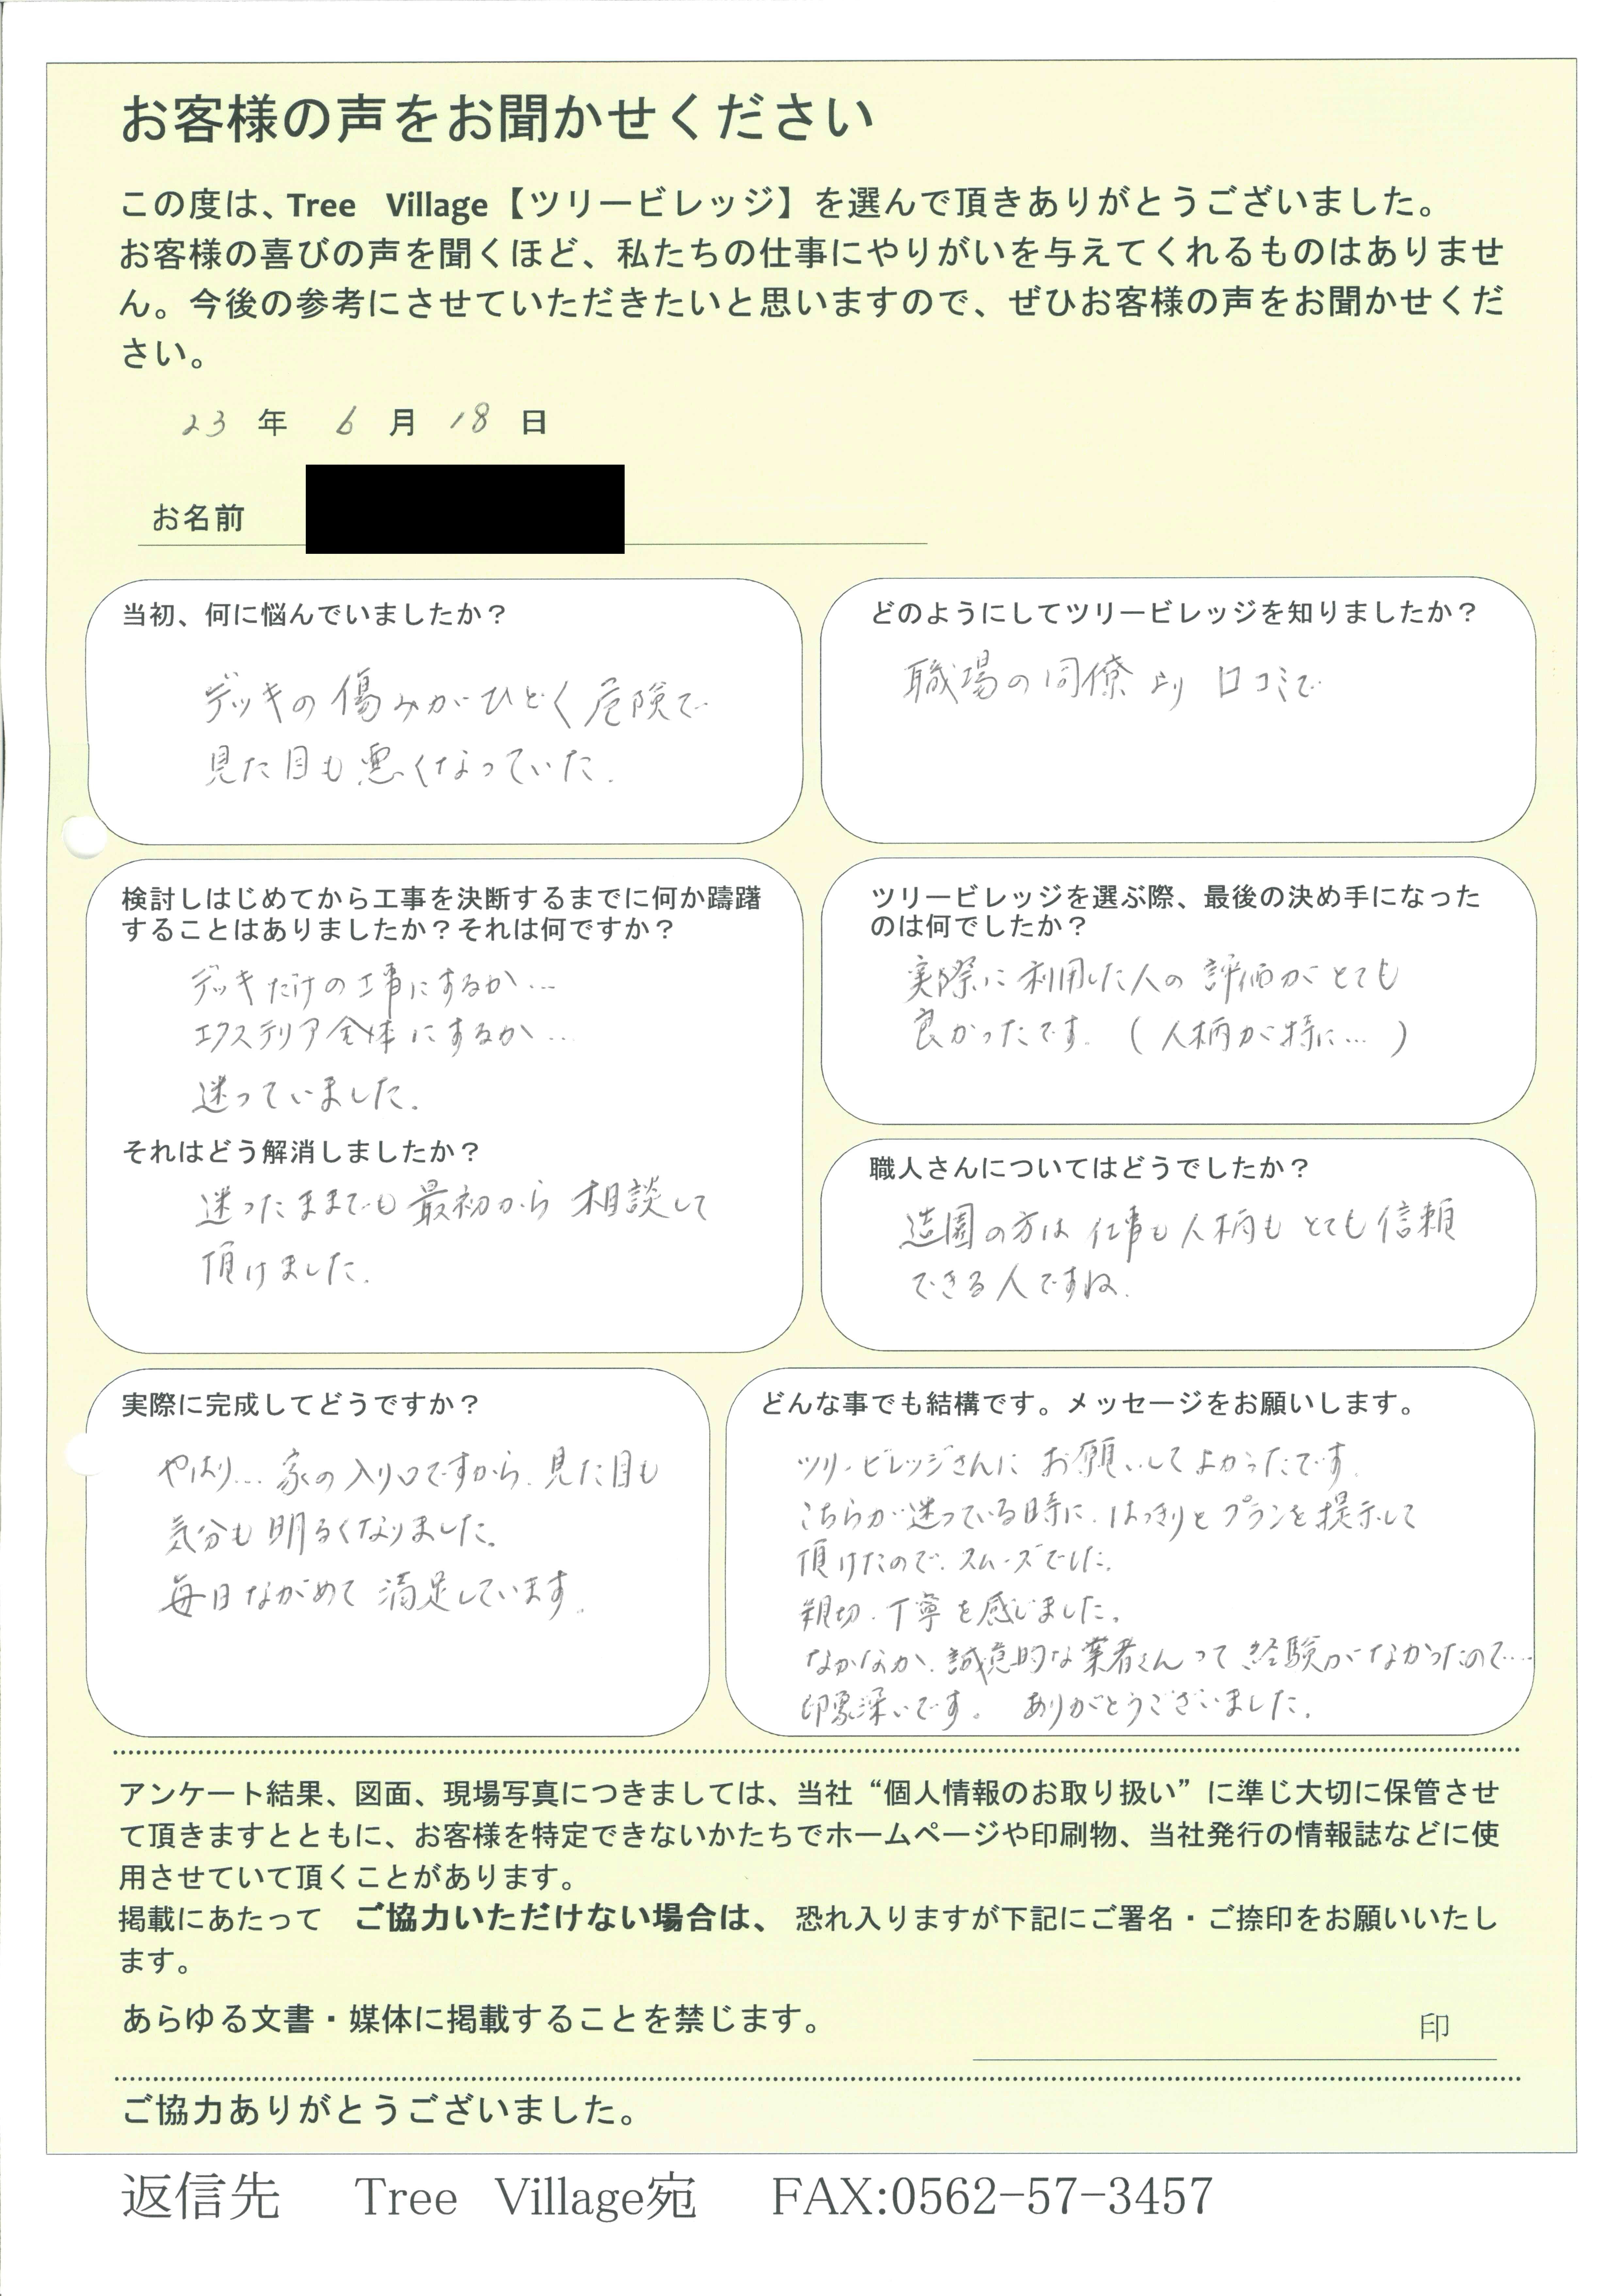 お客様の声をお聞かせください
この度は、Tree Village【ツリービレッジ】を選んで頂きありがとうございました。
お客様の喜びの声を聞くほど、私たちの仕事にやりがいを与えてくれるものはありませ
ん。今後の参考にさせていただきたいと思いますので、ぜひお客様の声をお聞かせくだ
さい。
23 年 6 月 18 日
お名前
当初、何に悩んでいましたか？
デッキの傷みがひどく危険で
見た目も悪くなっていた.
どのようにしてツリービレッジを知りましたか？
職場の同僚より 口コミで
検討しはじめてから工事を決断するまでに何か躊躇
することはありましたか？それは何ですか？
デッキだけの工事にするか…
エクステリア全体にするか…
迷っていました.
それはどう解消しましたか？
迷ったままでも最初から 相談して
頂けました.
ツリービレッジを選ぶ際、最後の決め手になった
のは何でしたか？
実際に利用した人の評価がとても
良かったです. (人柄が特に…)
職人さんについてはどうでしたか？
造園の方は 仕事も人柄も とても信頼
できる人ですね.
実際に完成してどうですか？
やはり… 家の入り口ですから、見た目も
気分も明るくなりました。
毎日ながめて 満足しています.
どんな事でも結構です。メッセージをお願いします。
ツリービレッジさんに お願いしてよかったです.
こちらが迷っている時に、はっきりとプランを提示して
頂けたので、スムーズでした.
親切・丁寧を感じました.
なかなか、誠意的な業者さんって経験がなかったので…
印象深いです。 ありがとうございました.
アンケート結果、図面、現場写真につきましては、当社“個人情報のお取り扱い”に準じ大切に保管させ
て頂きますとともに、お客様を特定できないかたちでホームページや印刷物、当社発行の情報誌などに使
用させていて頂くことがあります。
掲載にあたって ご協力いただけない場合は、 恐れ入りますが下記にご署名・ご捺印をお願いいたし
ます。
あらゆる文書・媒体に掲載することを禁じます。
印
ご協力ありがとうございました。
返信先 Tree Village宛 FAX:0562-57-3457